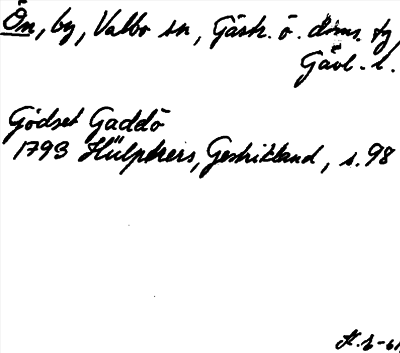 Ön, by, Valbo sn, Gästr. ö. doms. tg,
Gävl. l.
Gödset Gaddö
1793 Hülphers, Gestrikland, s. 98